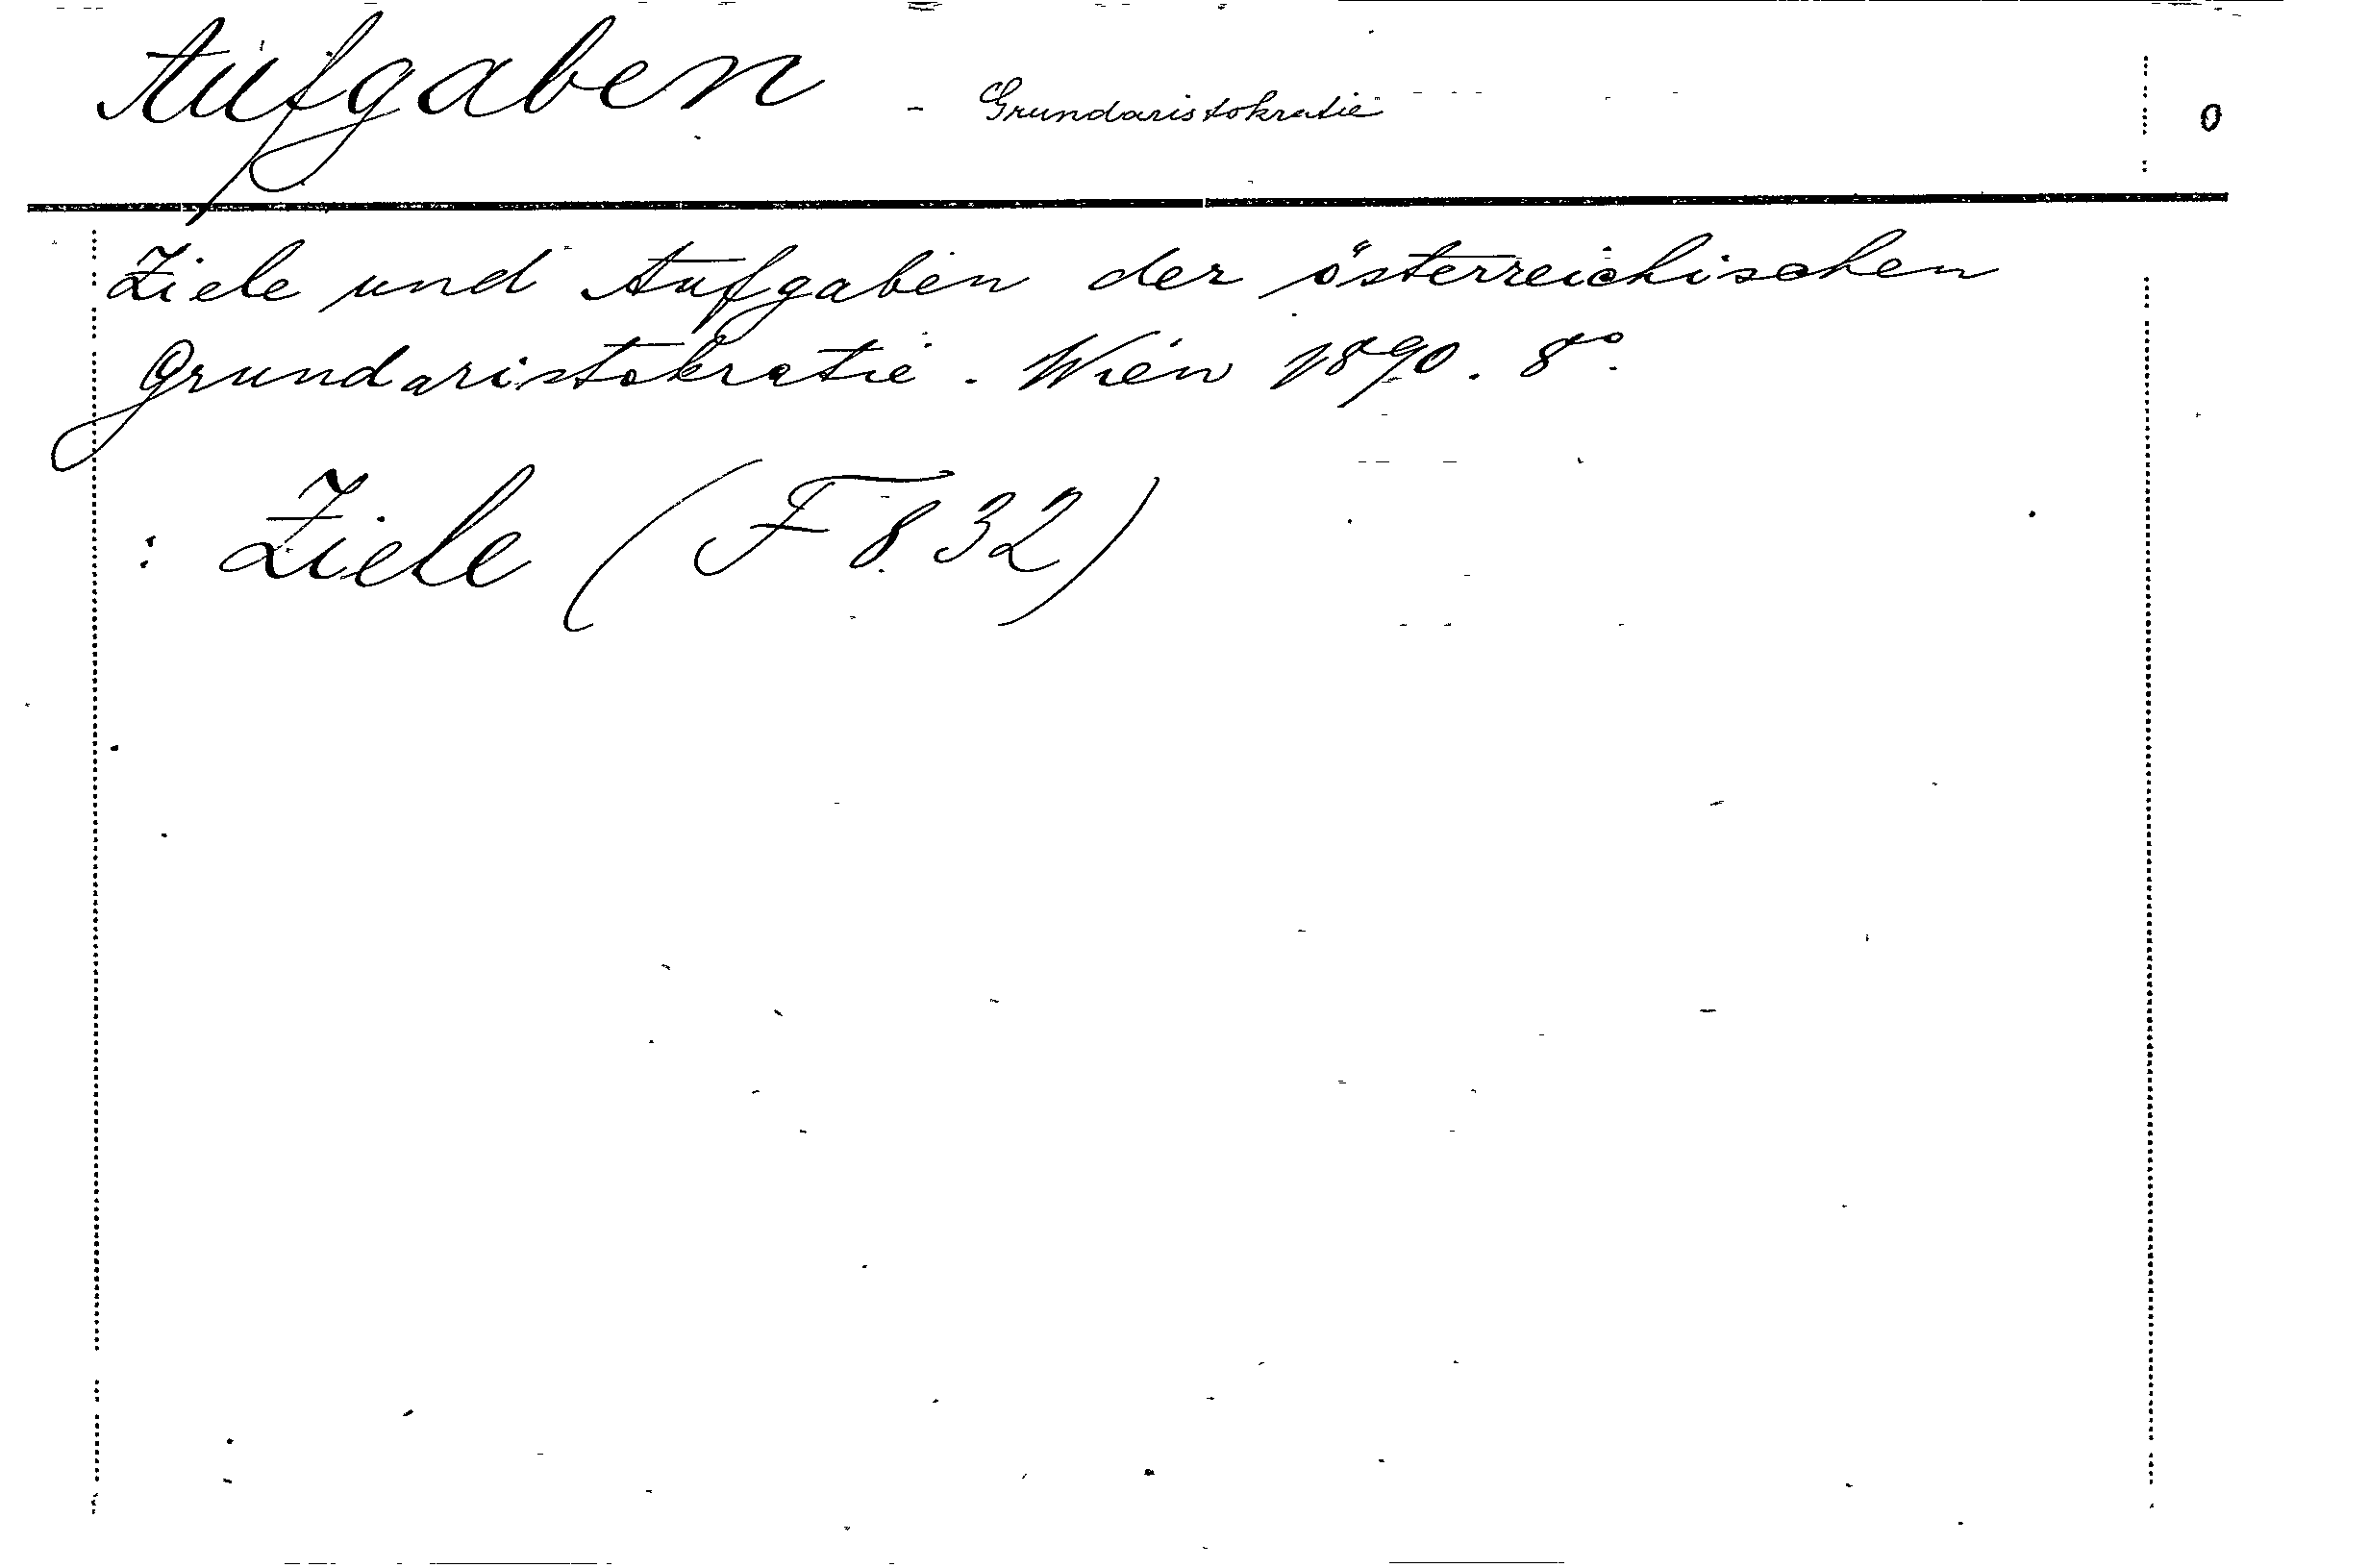 Aufgaben - Grundaristokratie 0
Ziele und Aufgaben der österreichischen
Grundaristokratie. Wien 1890. 8°.
: Ziele (F 832)